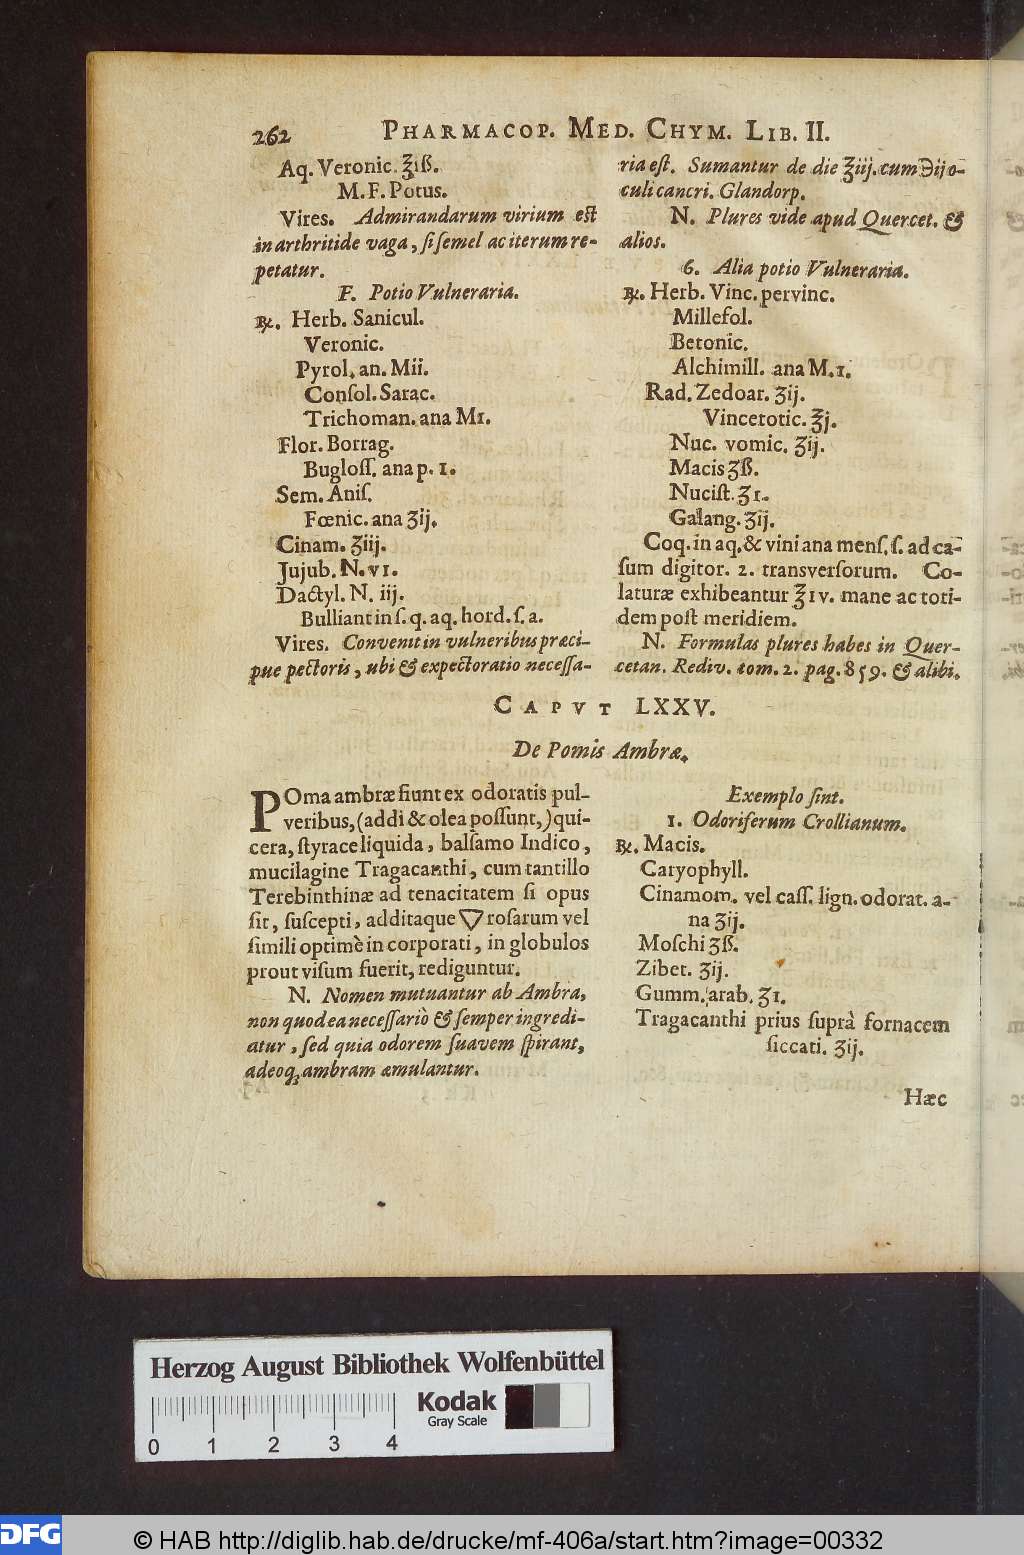 262 PHARMACOP. MED. CHYM. LIB. II.
Aq. Veronic. ℥iß.
M. F. Potus.
Vires. Admirandarum virium est
in arthritide vaga, si semel ac iterum re-
petatur.
F. Potio Vulneraria.
℞. Herb. Sanicul.
Veronic.
Pyrol. an. Mii.
Conſol. Sarac.
Trichoman. ana M1.
Flor. Borrag.
Bugloſſ. ana p. 1.
Sem. Aniſ.
Fœnic. ana ʒij.
Cinam. ʒiij.
Jujub. N. vi.
Dactyl. N. iij.
Bulliant in ſ. q. aq. hord. ſ. a.
Vires. Convenit in vulneribus præci-
pue pectoris, ubi & expectoratio neceſſa-
ria eſt. Sumantur de die ℥iij. cum ℈ij o-
culi cancri. Glandorp.
N. Plures vide apud Quercet. &
alios.
6. Alia potio Vulneraria.
℞. Herb. Vinc. pervinc.
Millefol.
Betonic.
Alchimill. ana M. 1.
Rad. Zedoar. ʒij.
Vincetotic. ℥j.
Nuc. vomic. ʒij.
Macis ʒß.
Nuciſt. ʒ1.
Galang. ʒij.
Coq. in aq. & vini ana menſ. ſ. ad ca-
ſum digitor. 2. transverſorum. Co-
laturæ exhibeantur ℥iv. mane ac toti-
dem poſt meridiem.
N. Formulas plures habes in Quer-
cetan. Rediv. tom. 2. pag. 859. & alibi.
CAPVT LXXV.
De Pomis Ambræ.
POma ambræ fiunt ex odoratis pul-
veribus, (addi & olea poſſunt,) qui-
cera, ſtyrace liquida, balſamo Indico,
mucilagine Tragacanthi, cum tantillo
Terebinthinæ ad tenacitatem ſi opus
ſit, ſuſcepti, additaque 🜄 roſarum vel
ſimili optimè in corporati, in globulos
prout viſum fuerit, rediguntur.
N. Nomen mutuantur ab Ambra,
non quod ea neceſſariò & ſemper ingredi-
atur, ſed quia odorem ſuavem ſpirant,
adeoq; ambram æmulantur.
Exemplo ſint.
1. Odoriferum Crollianum.
℞. Macis.
Caryophyll.
Cinamom. vel caſſ. lign. odorat. a-
na ʒij.
Moſchi ʒß.
Zibet. ʒij.
Gumm. arab. ʒ1.
Tragacanthi prius ſuprà fornacem
ſiccati. ʒij.
Hæc
Herzog August Bibliothek Wolfenbüttel
Kodak
Gray Scale
0 1 2 3 4
DFG
© HAB http://diglib.hab.de/drucke/mf-406a/start.htm?image=00332